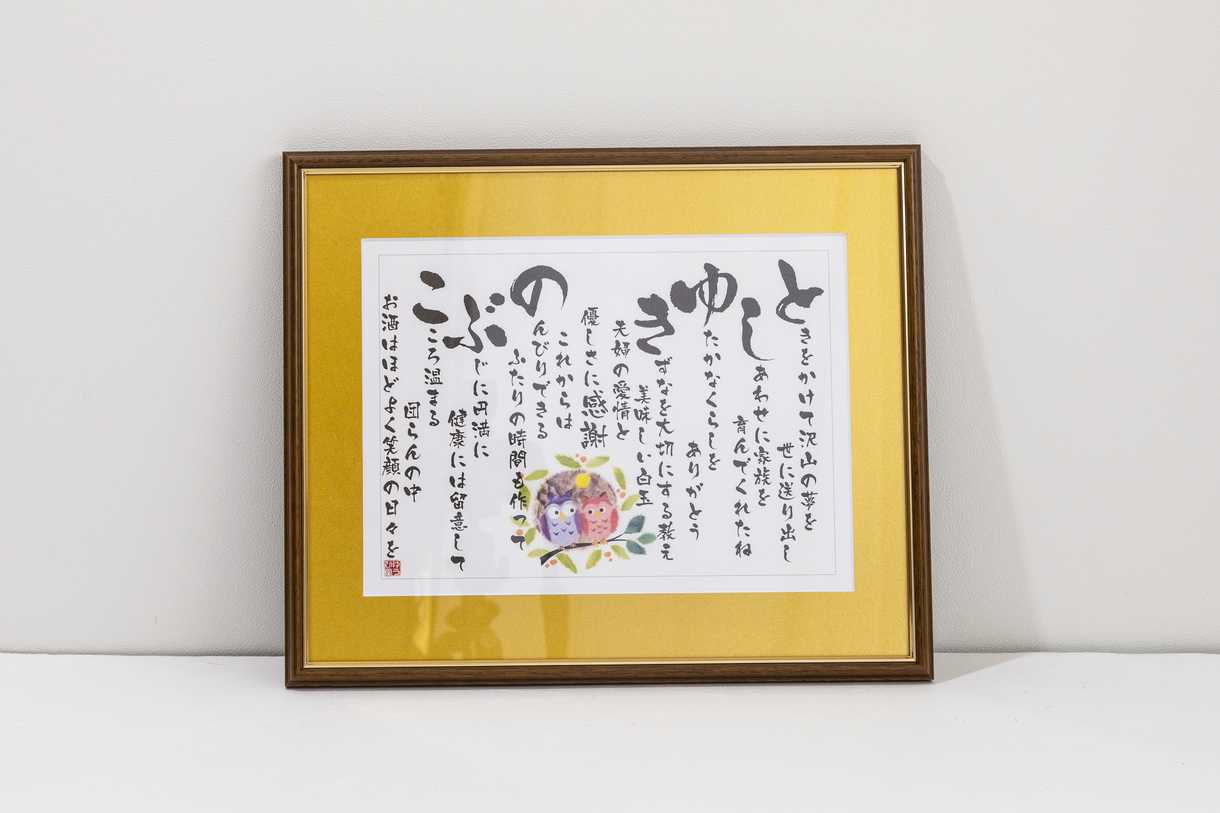 ときをかけて沢山の夢を
世に送り出し
しあわせに家族を
育んでくれたね
ゆたかなくらしを
ありがとう
きずなを大切にする教え
美味しい白玉
夫婦の愛情と
優しさに感謝
これからは
のんびりできる
ふたりの時間も作って
ぶじに円満に
健康には留意して
こころ温まる
団らんの中
お酒はほどよく笑顔の日々を